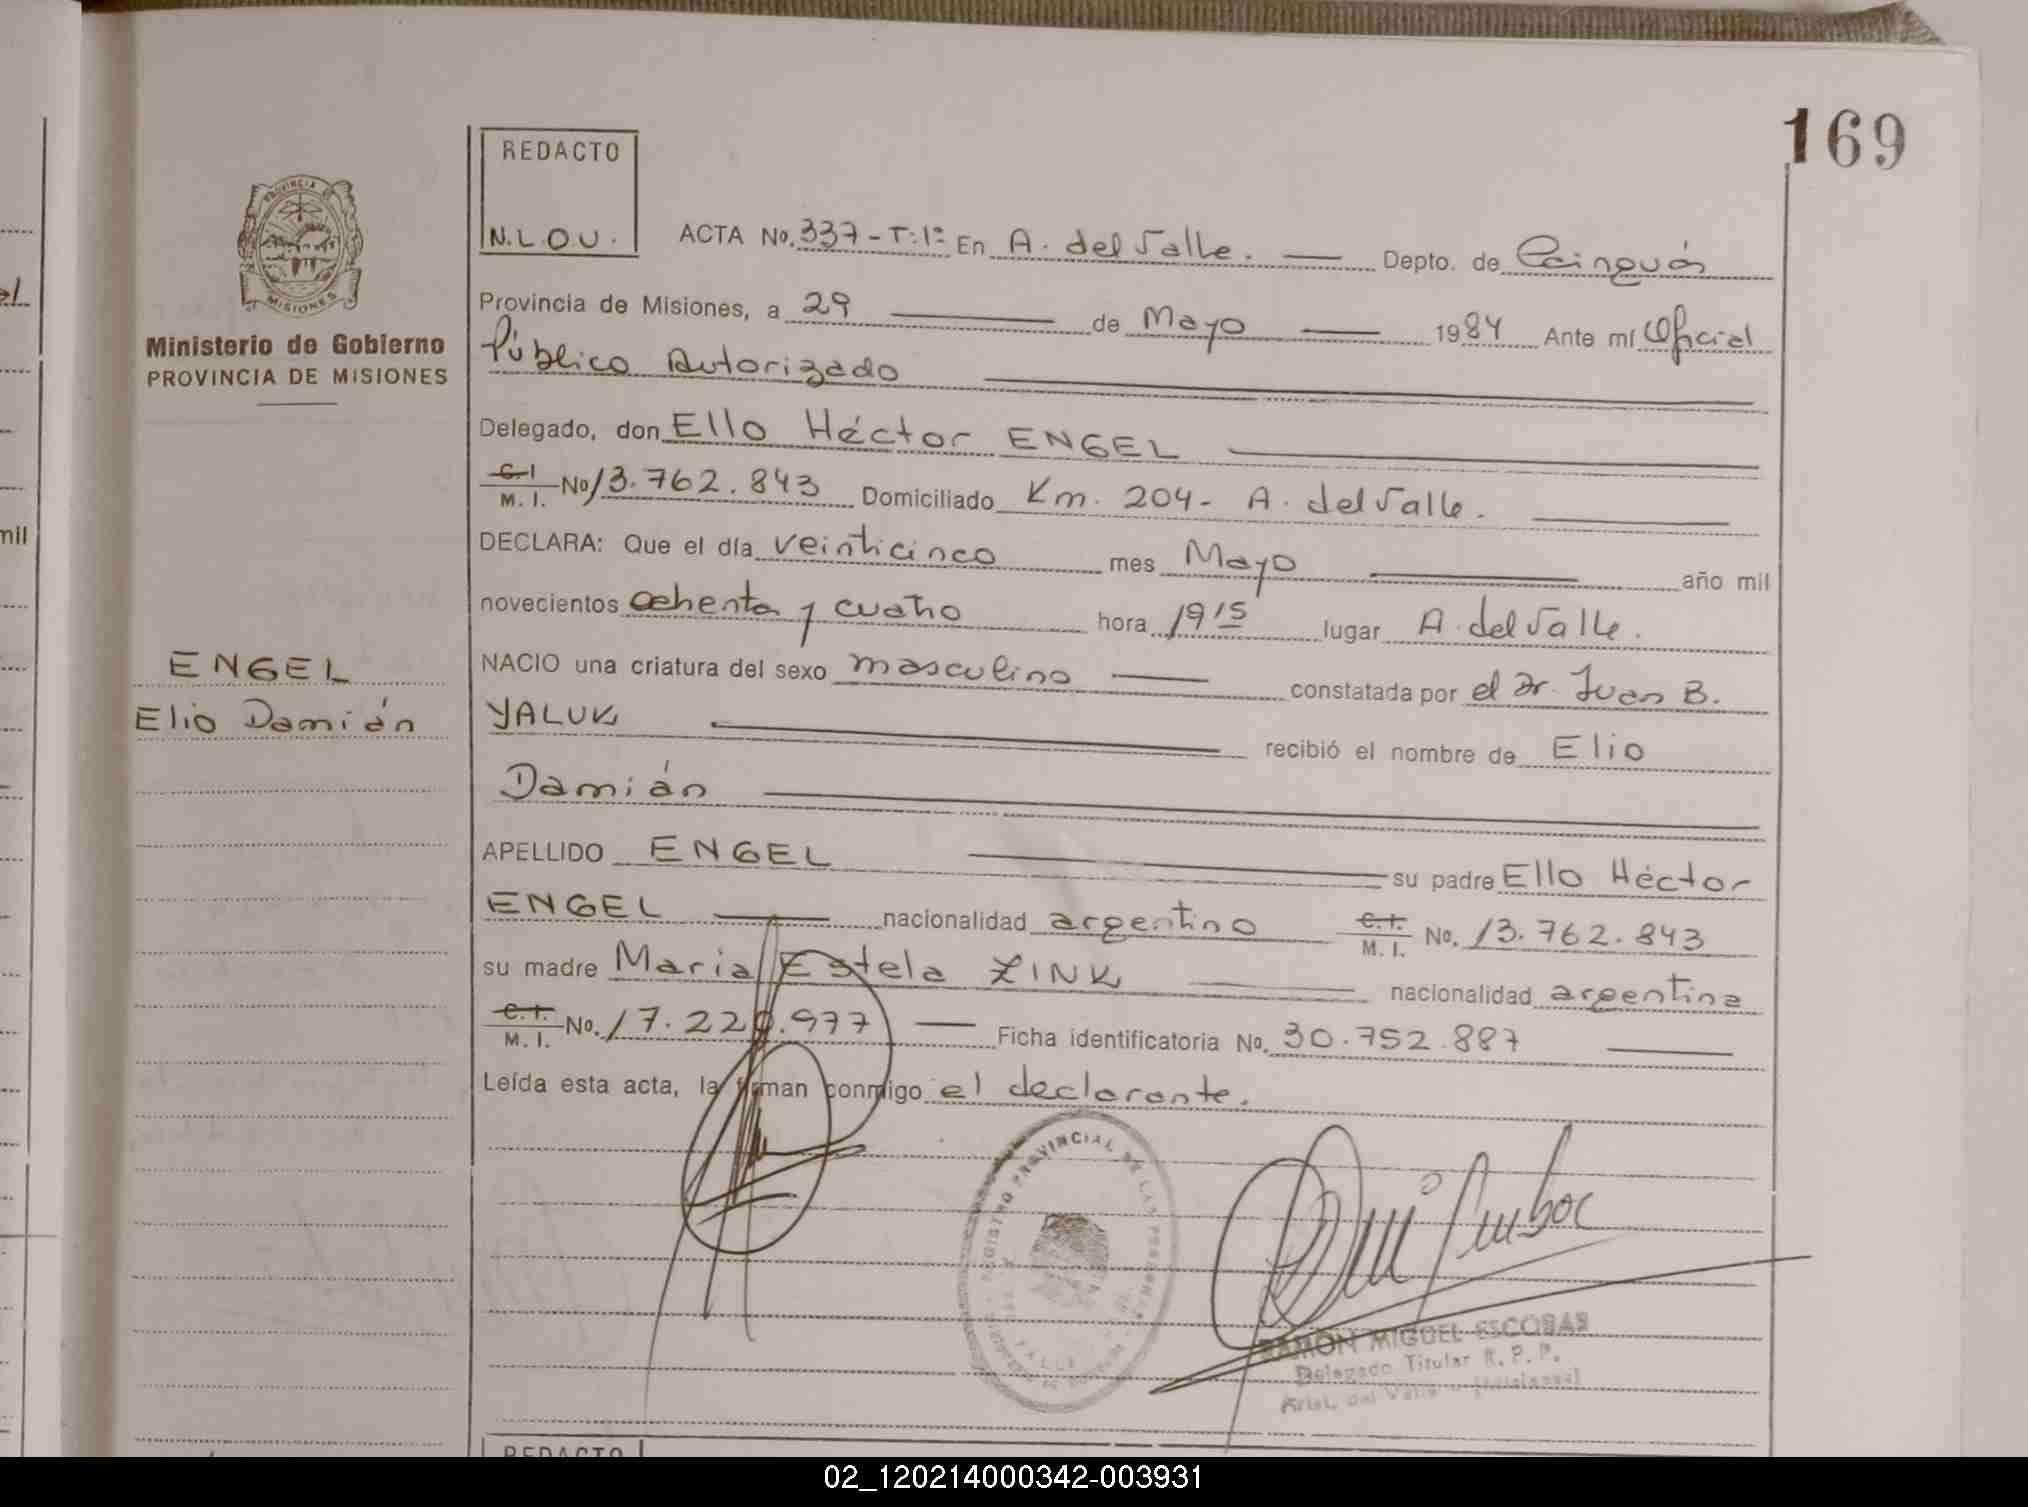 169
REDACTO
N.L.O.U.
PROVINCIA DE
MISIONES
Ministerio de Gobierno
PROVINCIA DE MISIONES
ENGEL
Elio Damián
ACTA No. 337-T:1º En A. del Valle. Depto. de Cainguás
Provincia de Misiones, a 29 de Mayo 1984 Ante mí Oficial
Público Autorizado
Delegado, don Ello Héctor ENGEL
C.I. M. I. No 13.762.843 Domiciliado Km. 204- A. del Valle.
DECLARA: Que el día veinticinco mes Mayo año mil
novecientos ochenta y cuatro hora 19 15 lugar A. del Valle.
NACIO una criatura del sexo masculino constatada por el Dr. Juan B.
YALUK recibió el nombre de Elio
Damián
APELLIDO ENGEL su padre Ello Héctor
ENGEL nacionalidad argentino C.I. M. I. No. 13.762.843
su madre Maria Estela ZINK nacionalidad argentina
C.I. M. I. No. 17.229.977 Ficha identificatoria No. 30.752.887
Leída esta acta, la firman conmigo el declarante.
REGISTRO PROVINCIAL DE LAS PERSONAS
RAMON MIGUEL ESCOBAR
Delegado Titular R. P. P.
Arist. del Valle
REDACTO
02_120214000342-003931
mil